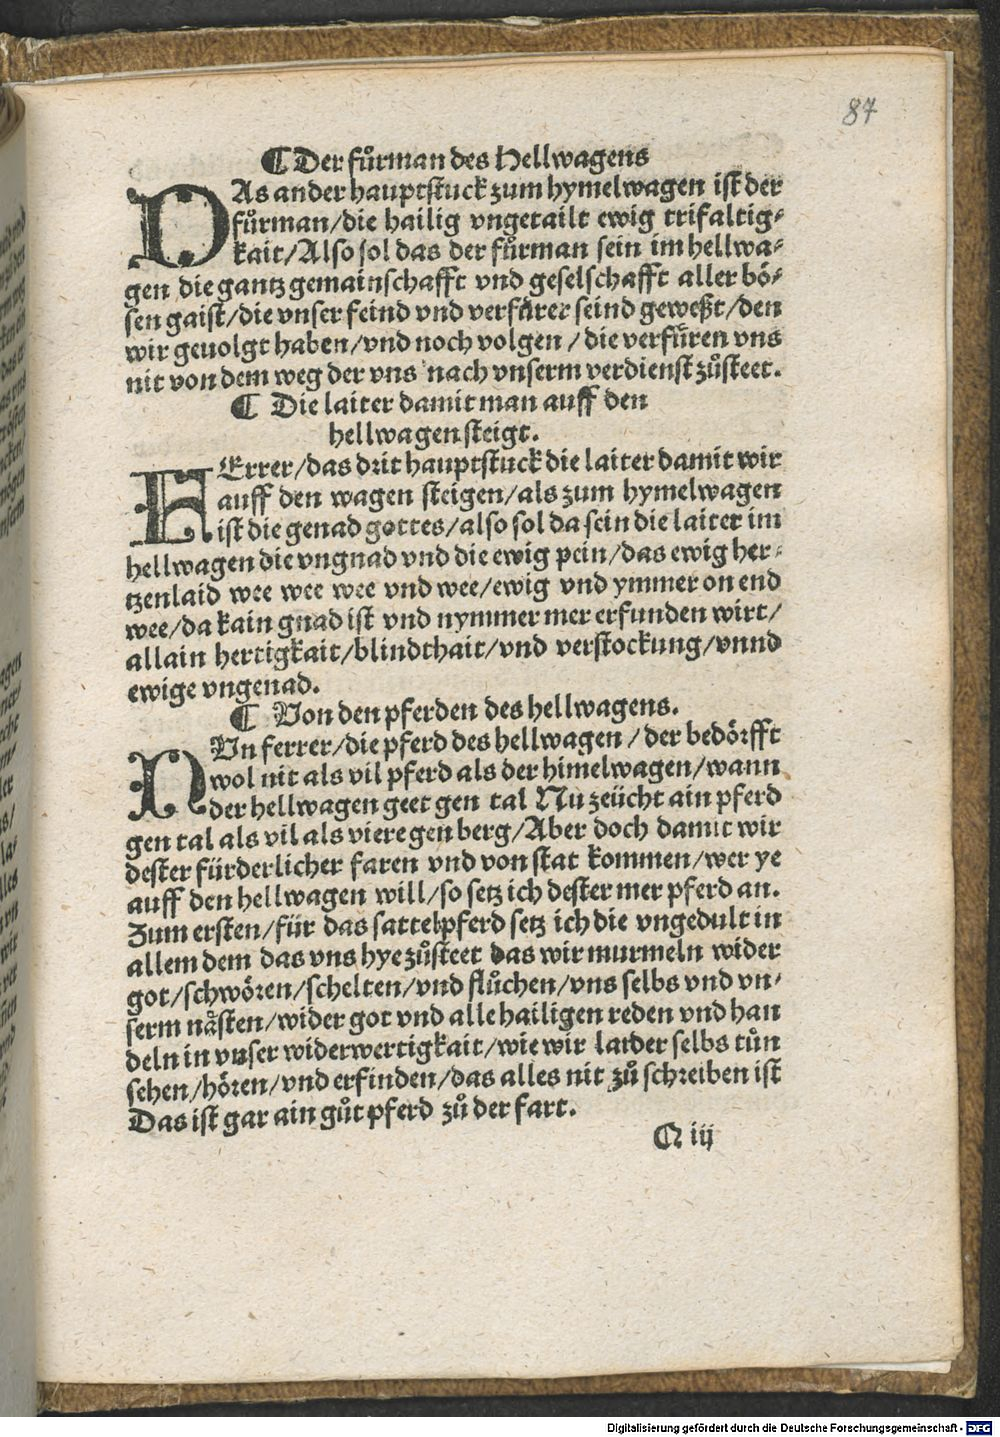 87
¶ Der fuͦrman des Hellwagens
DAs ander hauptstuck zum hymelwagen ist der
fuͦrman/die hailig vngetailt ewig trifaltig-
kait/Also sol das der fuͦrman sein im hellwa-
gen die gantz gemainschafft vnd geselschafft aller bö-
sen gaist/die vnser feind vnd verfuͦrer seind geweßt/den
wir geuolgt haben/vnd noch volgen/die verfuͦren vns
nit von dem weg der vns nach vnserm verdienst zuͦsteet.
¶ Die laiter damit man auff den
hellwagen steigt.
FErrer/das drit hauptstuck die laiter damit wir
auff den wagen steigen/als zum hymelwagen
ist die genad gottes/also sol da sein die laiter im
hellwagen die vngnad vnd die ewig pein/das ewig her-
tzenlaid wee wee wee vnd wee/ewig vnd ymmer on end
wee/da kain gnad ist vnd nymmer mer erfunden wirt/
allain hertigkait/blindthait/vnd verstockung/vnnd
ewige vngenad.
¶ Von den pferden des hellwagens.
NVn ferrer/die pferd des hellwagen/der bedörfft
wol nit als vil pferd als der himelwagen/wann
der hellwagen geet gen tal Nu zeücht ain pferd
gen tal als vil als viere gen berg/Aber doch damit wir
dester fürderlicher faren vnd von stat kommen/wer ye
auff den hellwagen will/so setz ich dester mer pferd an.
Zum ersten/für das sattelpferd setz ich die vngedult in
allem dem das vns hye zuͦsteet das wir murmeln wider
got/schwören/schelten/vnd fluͦchen/vns selbs vnd vn-
serm nåsten/wider got vnd alle hailigen reden vnd han
deln in vnser widerwertigkait/wie wir laider selbs tuͦn
sehen/hören/vnd erfinden/das alles nit zuͦ schreiben ist
Das ist gar ain guͦt pferd zuͦ der fart.
N iij
Digitalisierung gefördert durch die Deutsche Forschungsgemeinschaft - DFG